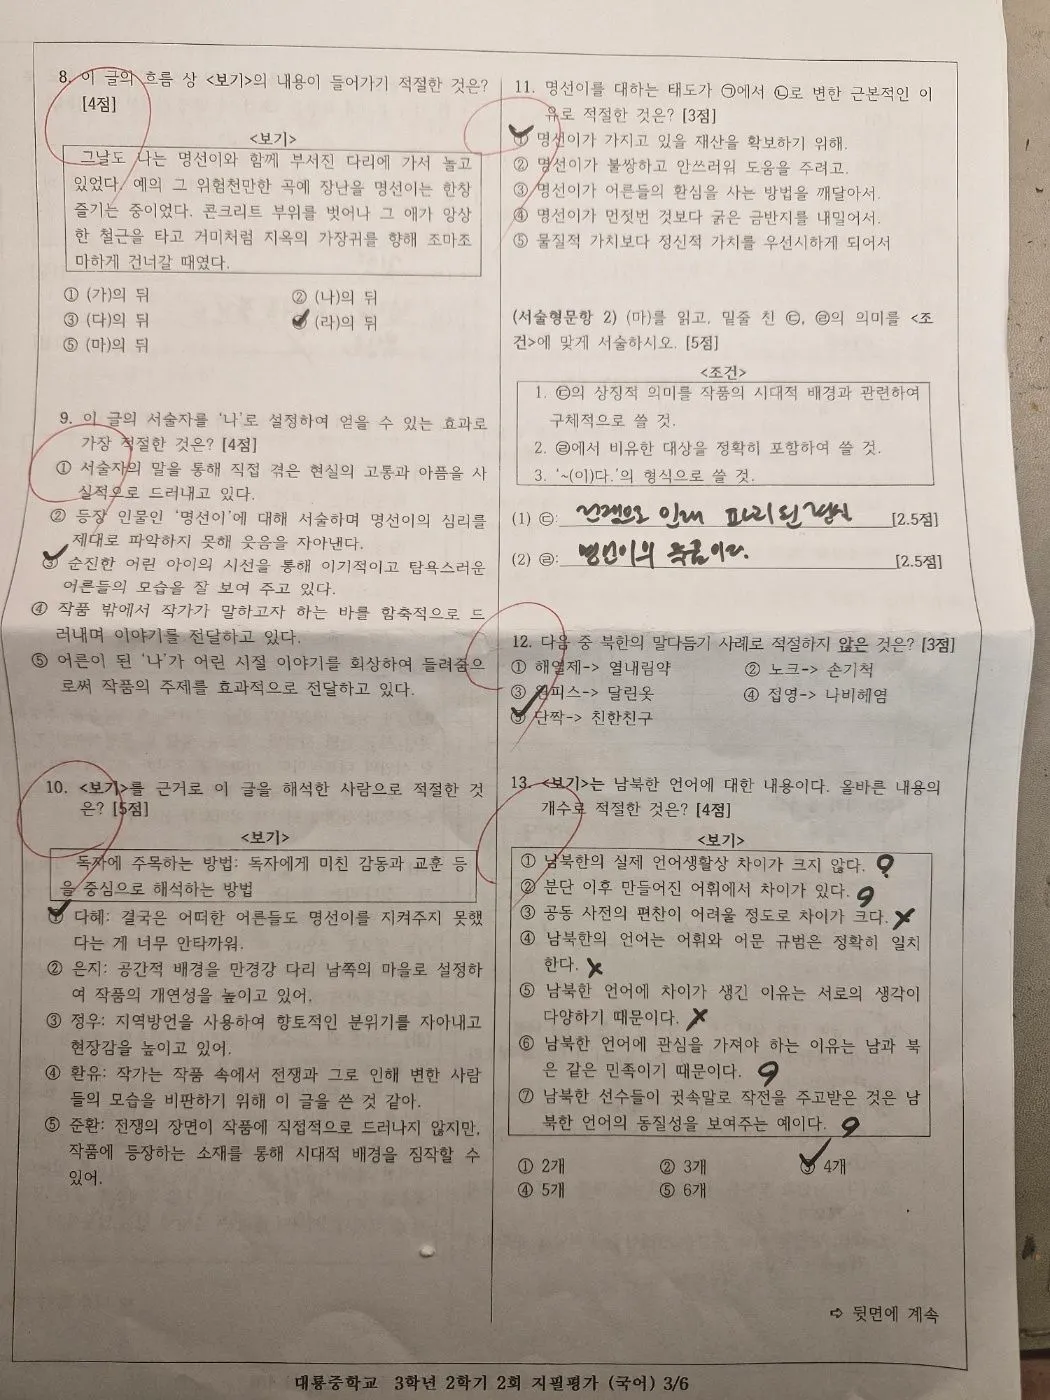 8. 이 글의 흐름 상 <보기>의 내용이 들어가기 적절한 것은?
[4점]
<보기>
그날도 나는 명선이와 함께 부서진 다리에 가서 놀고
있었다. 예의 그 위험천만한 곡예 장난을 명선이는 한창
즐기는 중이었다. 콘크리트 부위를 벗어나 그 애가 앙상
한 철근을 타고 거미처럼 지옥의 가장귀를 향해 조마조
마하게 건너갈 때였다.
① (가)의 뒤 ② (나)의 뒤
③ (다)의 뒤 ④ (라)의 뒤
⑤ (마)의 뒤
9. 이 글의 서술자를 '나'로 설정하여 얻을 수 있는 효과로
가장 적절한 것은? [4점]
① 서술자의 말을 통해 직접 겪은 현실의 고통과 아픔을 사
실적으로 드러내고 있다.
② 등장 인물인 '명선이'에 대해 서술하며 명선이의 심리를
제대로 파악하지 못해 웃음을 자아낸다.
③ 순진한 어린 아이의 시선을 통해 이기적이고 탐욕스러운
어른들의 모습을 잘 보여 주고 있다.
④ 작품 밖에서 작가가 말하고자 하는 바를 함축적으로 드
러내며 이야기를 전달하고 있다.
⑤ 어른이 된 '나'가 어린 시절 이야기를 회상하여 들려줌으
로써 작품의 주제를 효과적으로 전달하고 있다.
10. <보기>를 근거로 이 글을 해석한 사람으로 적절한 것
은? [5점]
<보기>
독자에 주목하는 방법: 독자에게 미친 감동과 교훈 등
을 중심으로 해석하는 방법
① 다혜: 결국은 어떠한 어른들도 명선이를 지켜주지 못했
다는 게 너무 안타까워.
② 은지: 공간적 배경을 만경강 다리 남쪽의 마을로 설정하
여 작품의 개연성을 높이고 있어.
③ 정우: 지역방언을 사용하여 향토적인 분위기를 자아내고
현장감을 높이고 있어.
④ 환유: 작가는 작품 속에서 전쟁과 그로 인해 변한 사람
들의 모습을 비판하기 위해 이 글을 쓴 것 같아.
⑤ 준환: 전쟁의 장면이 작품에 직접적으로 드러나지 않지만,
작품에 등장하는 소재를 통해 시대적 배경을 짐작할 수
있어.
11. 명선이를 대하는 태도가 ㉠에서 ㉡로 변한 근본적인 이
유로 적절한 것은? [3점]
① 명선이가 가지고 있을 재산을 확보하기 위해.
② 명선이가 불쌍하고 안쓰러워 도움을 주려고.
③ 명선이가 어른들의 환심을 사는 방법을 깨달아서.
④ 명선이가 먼젓번 것보다 굵은 금반지를 내밀어서.
⑤ 물질적 가치보다 정신적 가치를 우선시하게 되어서
(서술형문항 2) (마)를 읽고, 밑줄 친 ㉢, ㉣의 의미를 <조
건>에 맞게 서술하시오. [5점]
<조건>
1. ㉢의 상징적 의미를 작품의 시대적 배경과 관련하여
구체적으로 쓸 것.
2. ㉣에서 비유한 대상을 정확히 포함하여 쓸 것.
3. '~(이)다.'의 형식으로 쓸 것.
(1) ㉢: 전쟁으로 인해 파괴된 [2.5점]
(2) ㉣: 명선이의 죽음이다. [2.5점]
12. 다음 중 북한의 말다듬기 사례로 적절하지 않은 것은? [3점]
① 해열제-> 열내림약 ② 노크-> 손기척
③ 원피스-> 달린옷 ④ 접영-> 나비헤염
⑤ 단짝-> 친한친구
13. <보기>는 남북한 언어에 대한 내용이다. 올바른 내용의
개수로 적절한 것은? [4점]
<보기>
① 남북한의 실제 언어생활상 차이가 크지 않다.
② 분단 이후 만들어진 어휘에서 차이가 있다.
③ 공동 사전의 편찬이 어려울 정도로 차이가 크다. x
④ 남북한의 언어는 어휘와 어문 규범은 정확히 일치
한다. x
⑤ 남북한 언어에 차이가 생긴 이유는 서로의 생각이
다양하기 때문이다. x
⑥ 남북한 언어에 관심을 가져야 하는 이유는 남과 북
은 같은 민족이기 때문이다.
⑦ 남북한 선수들이 귓속말로 작전을 주고받은 것은 남
북한 언어의 동질성을 보여주는 예이다.
① 2개 ② 3개 ③ 4개
④ 5개 ⑤ 6개
⇨ 뒷면에 계속
대룡중학교 3학년 2학기 2회 지필평가 (국어) 3/6